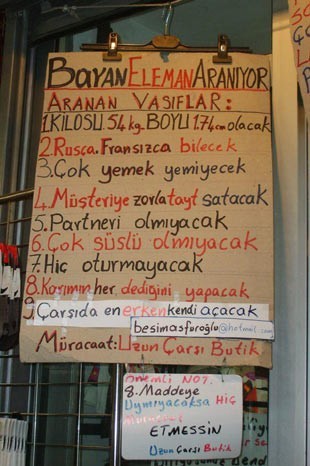 BAYAN ELEMAN ARANIYOR
ARANAN VASIFLAR:
1.KİLOSU 54kg BOYU 174cm olacak
2.Rusça.Fransızca bilecek
3.Çok yemek yemiyecek
4.Müşteriye zorla tayt satacak
5.Partneri olmıyacak
6.Çok süslü olmıyacak
7.Hiç oturmayacak
8.Karımın her dediğini yapacak
9.Çarşıda en erken kendi açacak
besimasfuroğlu@hotmail.com
Müracaat:Uzun Çarşı Butik
önemli NOT.
8.Maddeye
Uymıyacaksa Hiç
ETMESSİN
Uzun Çarşı Butik